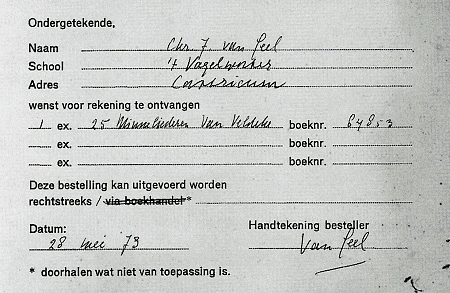 Ondergetekende,
Naam Chr. J. van Geel
School 't Vogelwater
Adres Castricum
wenst voor rekening te ontvangen
1 ex. 25 Minneliederen Van Veldeke boeknr. 64853
ex. boeknr.
ex. boeknr.
Deze bestelling kan uitgevoerd worden
rechtstreeks / via boekhandel*
Datum: Handtekening besteller
28 mei 73 Van Geel
* doorhalen wat niet van toepassing is.